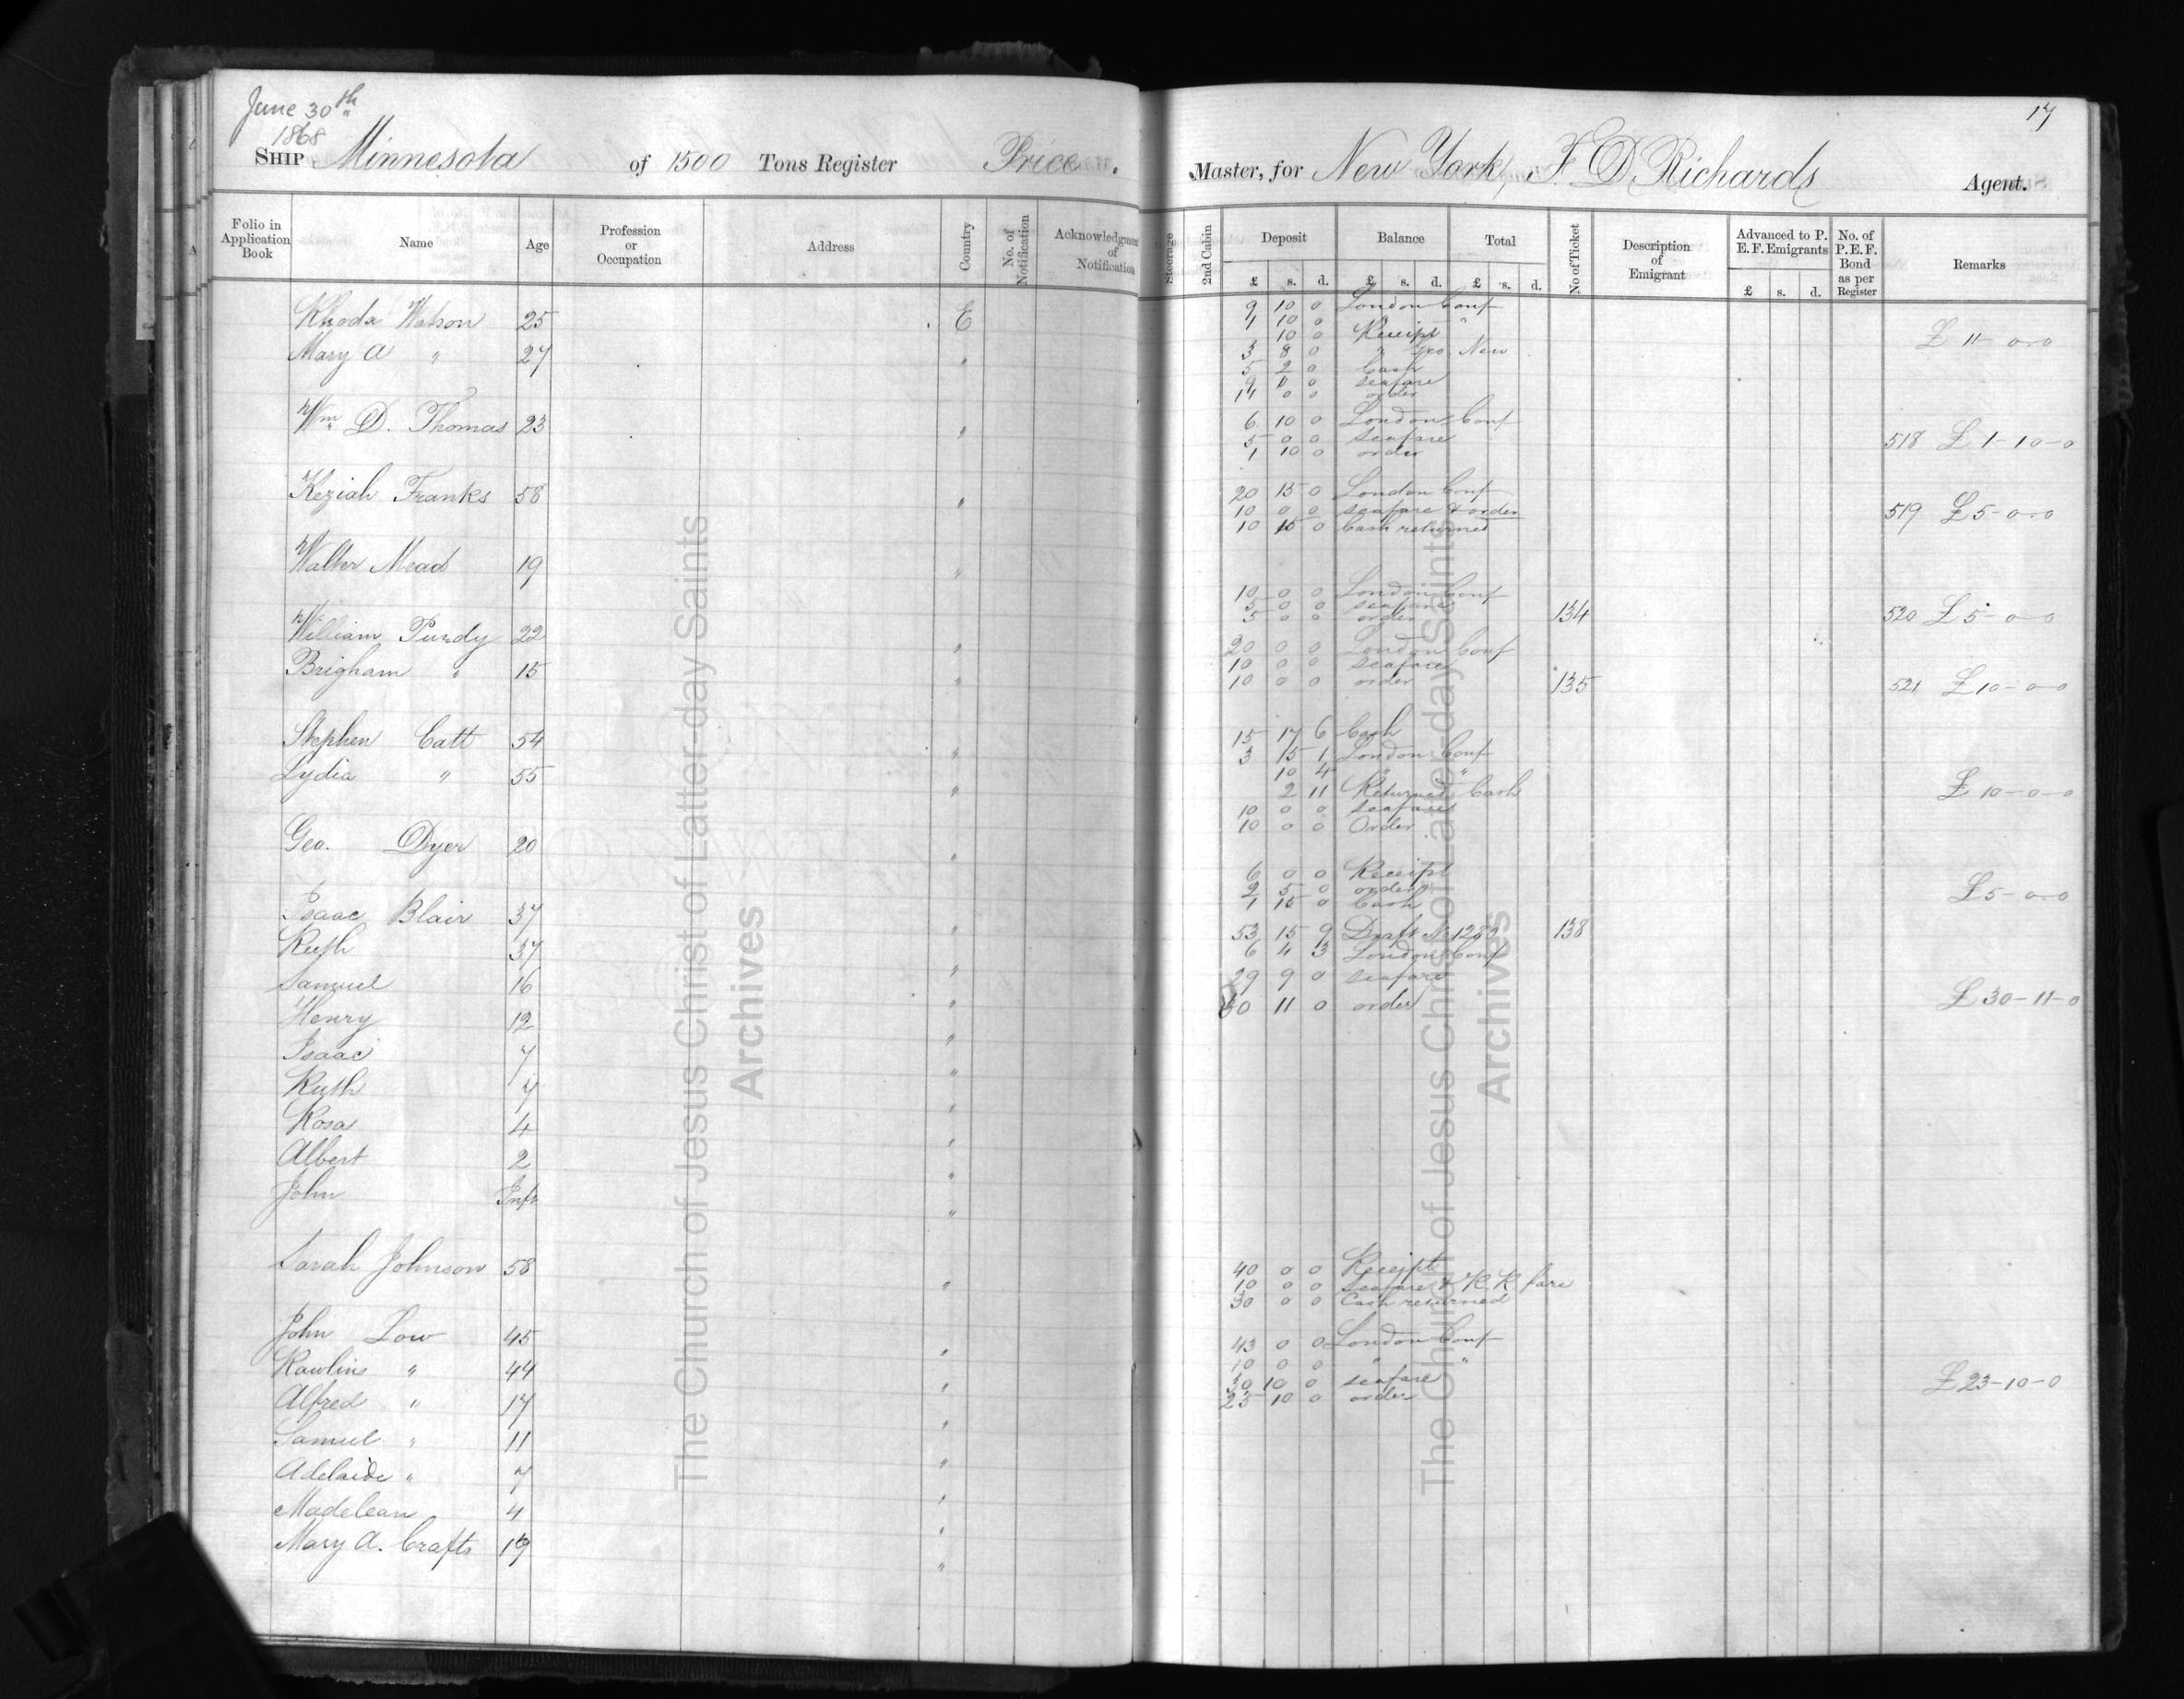 June 30th
1868
SHIP Minnesota of 1500 Tons Register Price Master, for New York, F D Richards Agent.
17
Folio in Application Book Name Age Profession or Occupation Address Country No. of Notification Acknowledgment of Notification
Steerage 2nd Cabin Deposit Balance Total No of Ticket Description of Emigrant Advanced to P. E. F. Emigrants No. of P.E.F. Bond as per Register Remarks
£ s. d. £ s. d. £ s. d. £ s. d.
Rhoda Watson 25 E
Mary A " 27 "
Wm D. Thomas 23 "
Keziah Franks 58 "
Walter Mead 19 "
William Purdy 22 "
Brigham " 15 "
Stephen Catt 54 "
Lydia " 55 "
Geo. Dyer 20 "
Isaac Blair 37 "
Ruth 37 "
Samuel 16 "
Henry 12 "
Isaac 7 "
Ruth 7 "
Rosa 4 "
Albert 2 "
John Inft "
Sarah Johnson 58 "
John Low 45 "
Rawlins " 44 "
Alfred " 17 "
Samuel " 11 "
Adelaide " 7 "
Madelean 4 "
Mary A. Crafts 19 "
9 10 0 London Conf
10 0 " "
10 0 Receipt £ 11-0-0
3 8 0 " Geo. New
5 2 0 Cash
9 0 seafare
14 0 0 order
6 10 0 London Conf
5 0 0 Seafare 518 £ 1-10-0
1 10 0 order
20 15 0 London Conf
10 0 0 seafare & order 519 £5-0-0
10 15 0 Cash returned
10 0 0 London Conf
5 0 0 seafare
5 0 0 order 134 520 £5-0-0
20 0 0 London Conf
10 0 0 seafare
10 0 0 order 135 521 £10-0-0
15 17 6 Cash
3 15 1 London Conf
10 4 " "
2 11 Returned Cash £ 10-0-0
10 0 0 seafare
10 0 0 Order
6 0 0 Receipt
2 5 0 order £5-0-0
1 15 0 Cash
53 15 9 Draft No 138
6 4 3 London Conf
29 9 0 seafare
30 11 0 order £30-11-0
40 0 0 Receipt
10 0 0 Seafare & R. R. fare
30 0 0 Cash returned
43 0 0 London Conf
10 0 0 " "
30 10 0 seafare £23-10-0
23 10 0 order
The Church of Jesus Christ of Latter-day Saints
Archives
The Church of Jesus Christ of Latter-day Saints
Archives